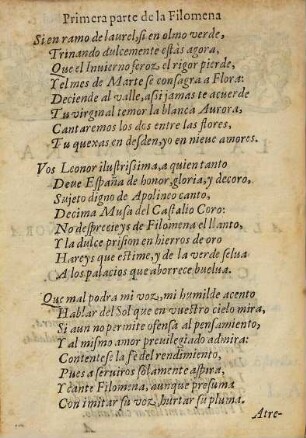 Primera parte de la Filomena
Si en ramo de laurel, si en olmo verde,
Trinando dulcemente estás agora,
Que el Inuierno feroz el rigor pierde,
Y el mes de Marte se consagra a Flora:
Deciende al valle, assi jamas te acuerde
Tu virginal temor la blanca Aurora,
Cantaremos los dos entre las flores,
Tu quexas en desden, yo en nieue amores.
Vos Leonor ilustrissima, a quien tanto
Deue España de honor, gloria, y decoro,
Sujeto digno de Apolineo canto,
Decima Musa del Castalio Coro:
No desprecieys de Filomena el llanto,
Y la dulce prision en hierros de oro
Hareys que estime, y de la verde selua
A los palacios que aborrece buelua.
Que mal podra mi voz, mi humilde acento
Hablar del Sol que en vuestro cielo mira,
Si aun no permite ofensa al pensamiento,
Y al mismo amor preuilegiado admira:
Contentese la fè del rendimiento,
Pues a seruiros solamente aspira,
Y cante Filomena, aunque presuma
Con imitar su voz, hurtar su pluma.
Atre-